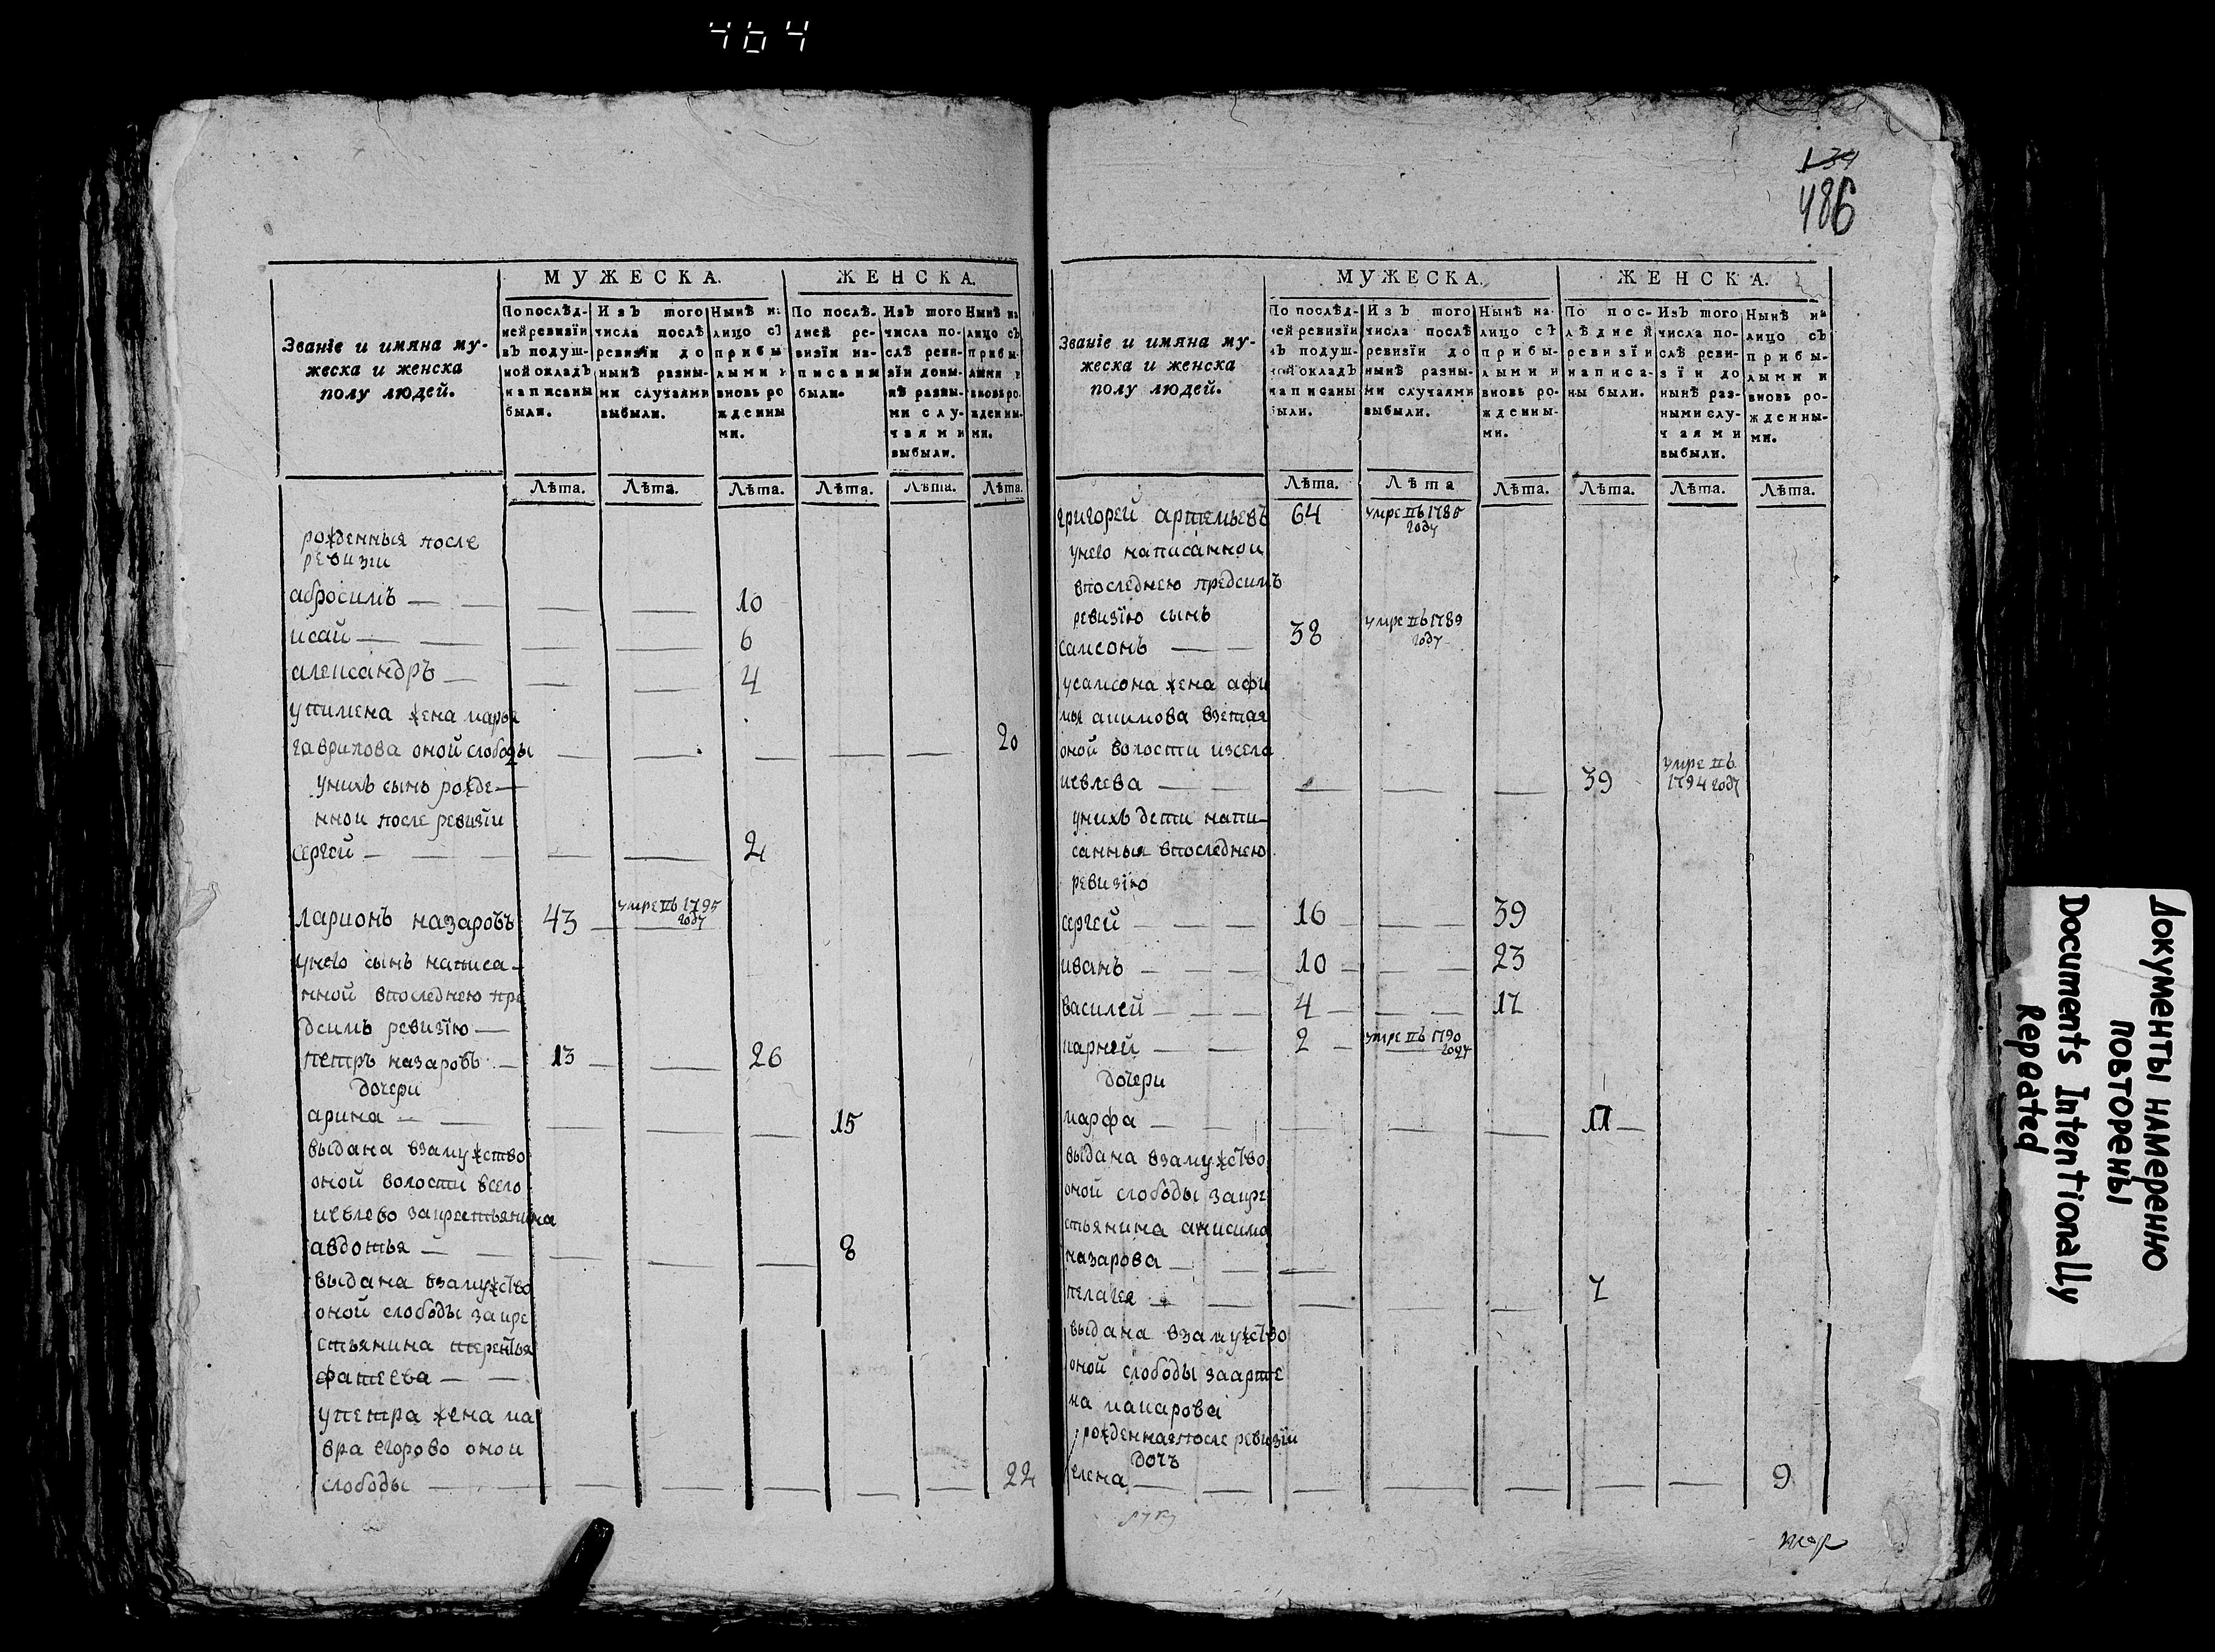 464
МУЖЕСКА.
ЖЕНСКА.
Званіе и имяна му-
жеска и женска
полу людей.
По послѣд-
ней ревизїи
въ подуш-
ной окладъ
написаны
были.
Изъ того
числа послѣ
ревизїи до
нынѣ разны-
ми случаями
выбыли.
Нынѣ н
лицо съ
прибы
лыми и
вновь ро
жденны
ми.
По послѣ-
дней ре-
визїи на-
писаны
были.
Изъ того
числа по-
слѣ реви-
зїи доны-
нѣ разны-
ми слу-
чаями
выбыли.
Нынѣ на
лицо съ
прибы-
лыми и
вновь ро-
жденны-
ми.
Лѣта.
Лѣта.
Лѣта.
Лѣта.
Лѣта.
Лѣта.
рожденныя после
ревизїи
абросимъ 10
исаи 6
александръ 4
упимена жена марья
гаврилова оной слободы 20
унихъ сынъ рожде-
ннои после ревизїи
сергей 2
ларионъ назаровъ 43 умре въ 1795 году
унего сынъ написа-
нной впоследнею пре
дсимъ ревизїю
петръ назаровъ 13 26
дочери
арина 15
выдана взамужство
оной волости всело
иевлево закрестьянина
авдотья 8
выдана взамужство
оной слободы закре
стьянина терентья
фатеева
упетра жена ма
вра егорово оной
слободы 22
134
486
МУЖЕСКА.
ЖЕНСКА.
Званіе и имяна му-
жеска и женска
полу людей.
По послѣд-
ней ревизїи
въ подуш-
ной окладъ
написаны
были.
Изъ того
числа послѣ
ревизїи до
нынѣ разны-
ми случаями
выбыли.
Нынѣ на-
лицо съ
прибы-
лыми и
вновь ро-
жденны-
ми.
По пос-
лѣдней
ревизїи
написа-
ны были.
Изъ того
числа по-
слѣ реви-
зїи до
нынѣ раз-
ными слу-
чаями
выбыли.
Нынѣ на
лицо съ
прибы-
лыми и
вновь ро-
жденны-
ми.
Лѣта.
Лѣта
Лѣта.
Лѣта.
Лѣта.
Лѣта.
григорей артемьевъ 64 умре въ 1785 году
унего написаннои
впоследнею предсимъ
ревизїю сынъ
самсонъ 38 умре въ 1789 году
усамсона жена афи
мья акимова взетая
оной волости изсела
иевлева 39 умре въ 1794 году
унихъ дети напи-
санныя впоследнею
ревизїю
сергей 16 39
иванъ 10 23
василей 4 17
карней 2 умре въ 1790 году
дочери
марфа 11
выдана взамужство
оной слободы закре
стьянина анисима
назарова
пелагея 7
выдана взамужство
оной слободы заарте
на макарова
рожденная после ревизїи
дочь
елена 9
Документы намеренно
повторены
Documents Intentionally
Repeated